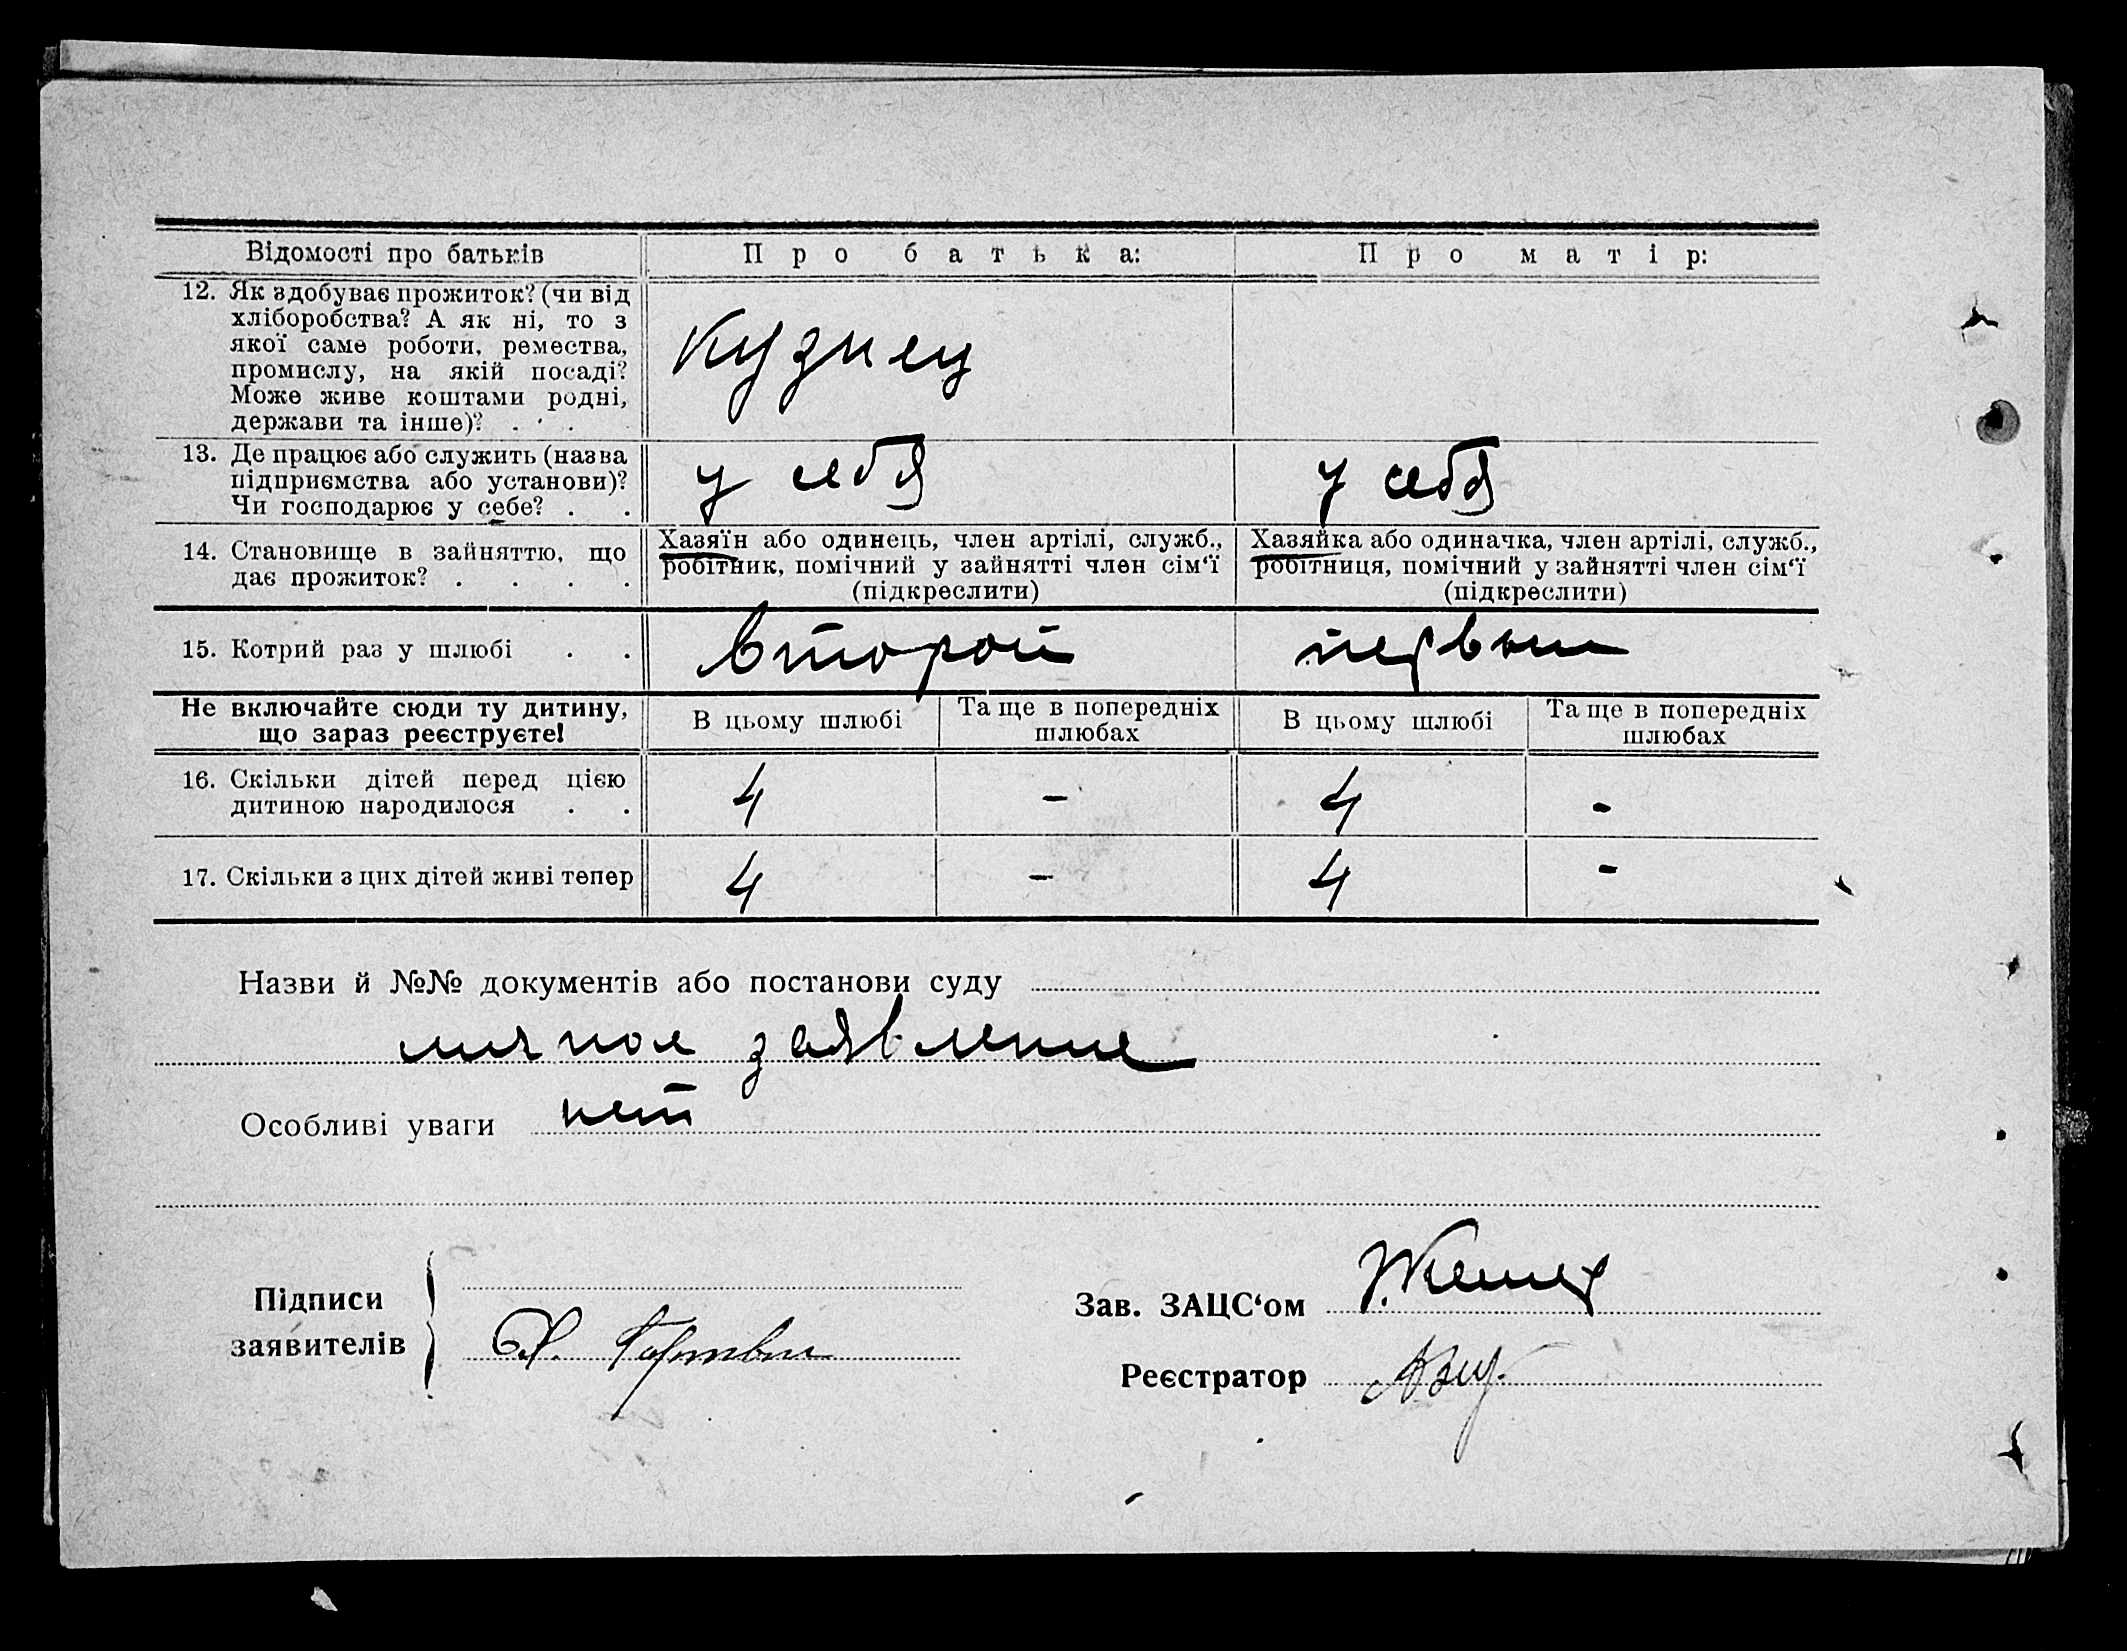 Відомості про батьків
Про батька:
Про матір:
12. Як здобуває прожиток? (чи від
хліборобства? А як ні, то з
якої саме роботи, ремества,
промислу, на якій посаді?
Може живе коштами родні,
держави та інше)? . . .
Кузнец
13. Де працює або служить (назва
підприємства або установи)?
Чи господарює у себе? . .
у себя
у себя
14. Становище в зайняттю, що
дає прожиток? . . . .
Хазяїн або одинець, член артілі, служб.,
робітник, помічний у зайнятті член сім'ї
(підкреслити)
Хазяйка або одиначка, член артілі, служб.,
робітниця, помічний у зайнятті член сім'ї
(підкреслити)
15. Котрий раз у шлюбі . .
второй
первый
Не включайте сюди ту дитину,
що зараз реєструєте!
В цьому шлюбі
Та ще в попередніх
шлюбах
В цьому шлюбі
Та ще в попередніх
шлюбах
16. Скільки дітей перед цією
дитиною народилося . .
4
-
4
-
17. Скільки з цих дітей живі тепер
4
-
4
-
Назви й №№ документів або постанови суду
личное заявление
Особливі уваги нет
Підписи
заявителів
Зав. ЗАЦС'ом
Реєстратор